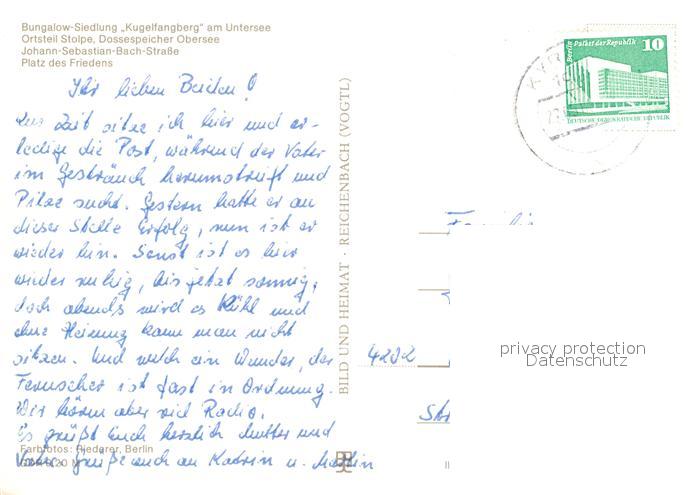 Bungalow-Siedlung „Kugelfangberg" am Untersee
Ortsteil Stolpe, Dossespeicher Obersee
Johann-Sebastian-Bach-Straße
Platz des Friedens
Ihr lieben Beiden!
Zur Zeit sitze ich hier und er-
ledige die Post, während der Vater
im Gesträuch herumstreift und
Pilze sucht. Gestern hatte er an
dieser Stelle Erfolg, nun ist er
wieder hin. Sonst ist es hier
wieder ruhig, bis jetzt sonnig,
doch abends wird es kühl und
ohne Heizung kann man nicht
sitzen. Und welch ein Wunder, der
Fernseher ist fast in Ordnung.
Wir hören aber viel Radio.
Es grüßt Euch herzlich Mutter und
Vater Grüße auch an Katrin u. Martin
Farbfotos: Riederer, Berlin
BILD UND HEIMAT · REICHENBACH (VOGTL)
Berlin Palast der Republik
10
DEUTSCHE DEMOKRATISCHE REPUBLIK
KYR
Familie
4292
Str
privacy protection
Datenschutz